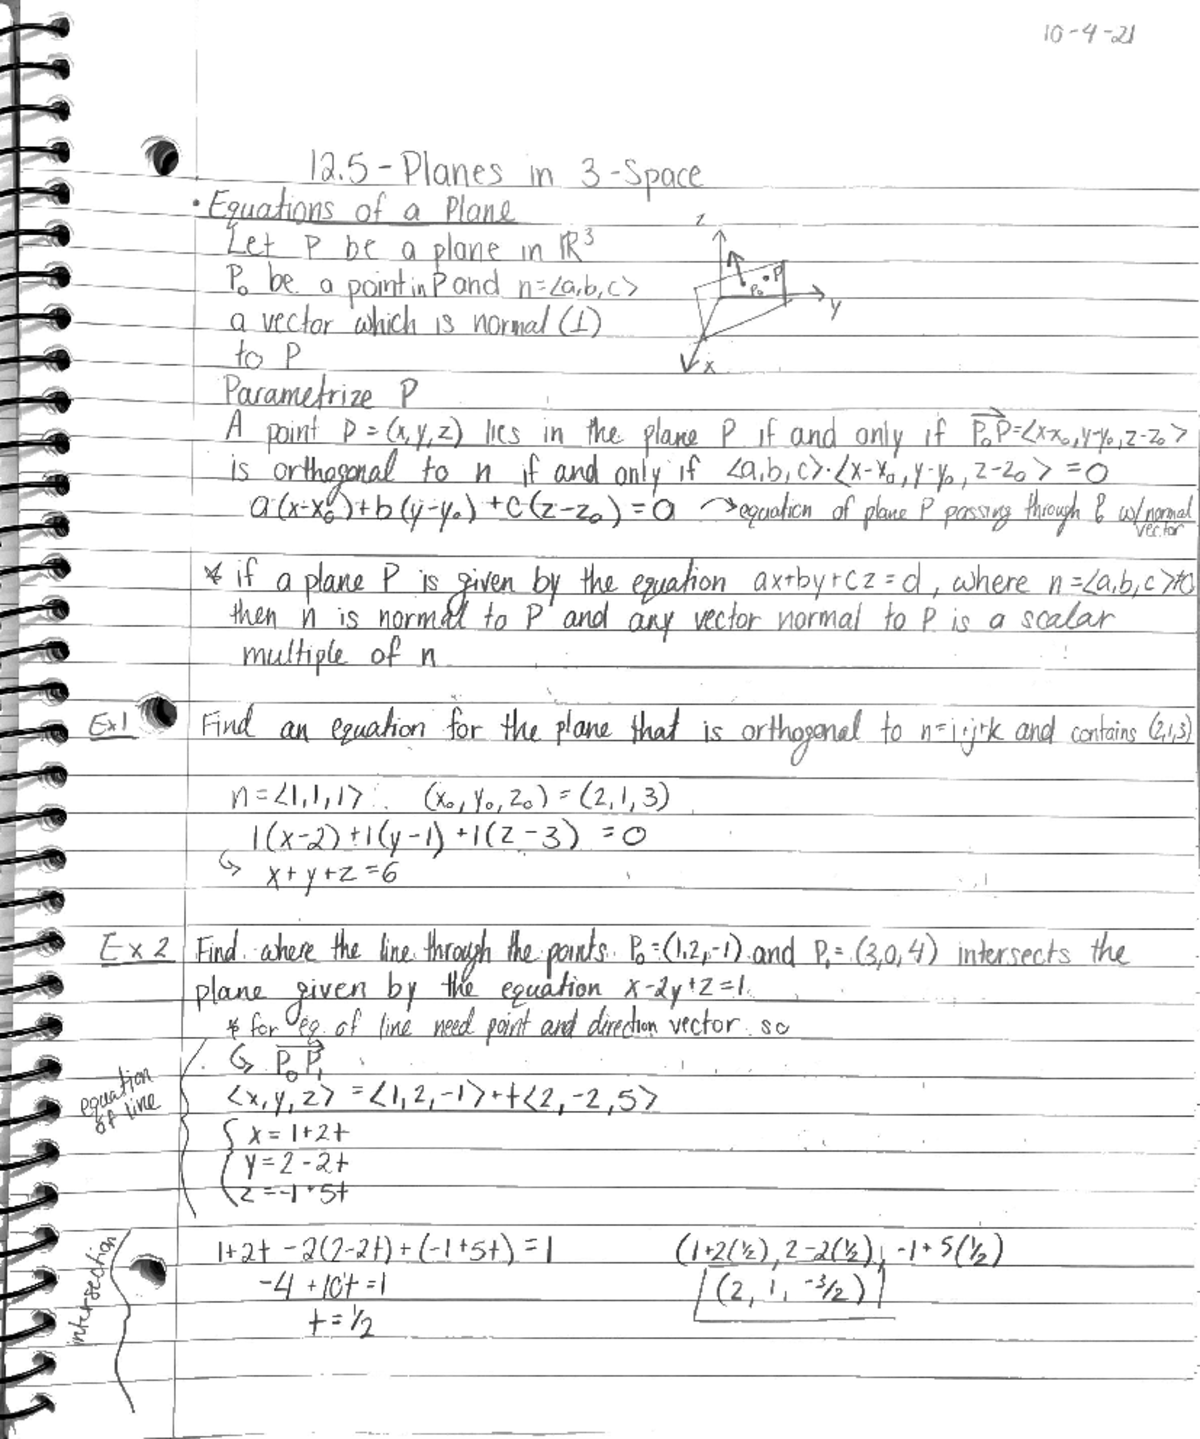 10-4-21
12.5-Planes in 3-Space
• Equations of a Plane
Let P be a plane in ℝ³
P₀ be a point in P and n=<a,b,c>
a vector which is normal (⊥)
to P
z
P
P₀
y
x
Parametrize P
A point P = (x,y,z) lies in the plane P if and only if P₀P=<x-x₀,y-y₀,z-z₀>
is orthogonal to n if and only if <a,b,c>·<x-x₀,y-y₀,z-z₀> = 0
a(x-x₀)+b(y-y₀)+c(z-z₀)=0 → equation of plane P passing through P₀ w/normal
vector
* if a plane P is given by the equation ax+by+cz=d, where n=<a,b,c>≠0
then n is normal to P and any vector normal to P is a scalar
multiple of n
Ex 1 Find an equation for the plane that is orthogonal to n=i+j+k and contains (2,1,3)
n=<1,1,1> (x₀,y₀,z₀) = (2,1,3)
1(x-2)+1(y-1)+1(z-3) =0
↪ x+y+z=6
Ex 2 Find where the line through the points P₀=(1,2,-1) and P₁=(3,0,4) intersects the
plane given by the equation x-2y+z=1.
* for eq. of line need point and direction vector so
↪ P₀P₁
equation
of line
<x,y,z> = <1,2,-1>+t<2,-2,5>
{ x = 1+2t
y = 2-2t
z=-1+5t
intersection
1+2t -2(2-2t)+(-1+5t) =1
-4 +10t =1
t = ½
(1+2(½), 2-2(½), -1+5(½)
(2, 1, -3/2)